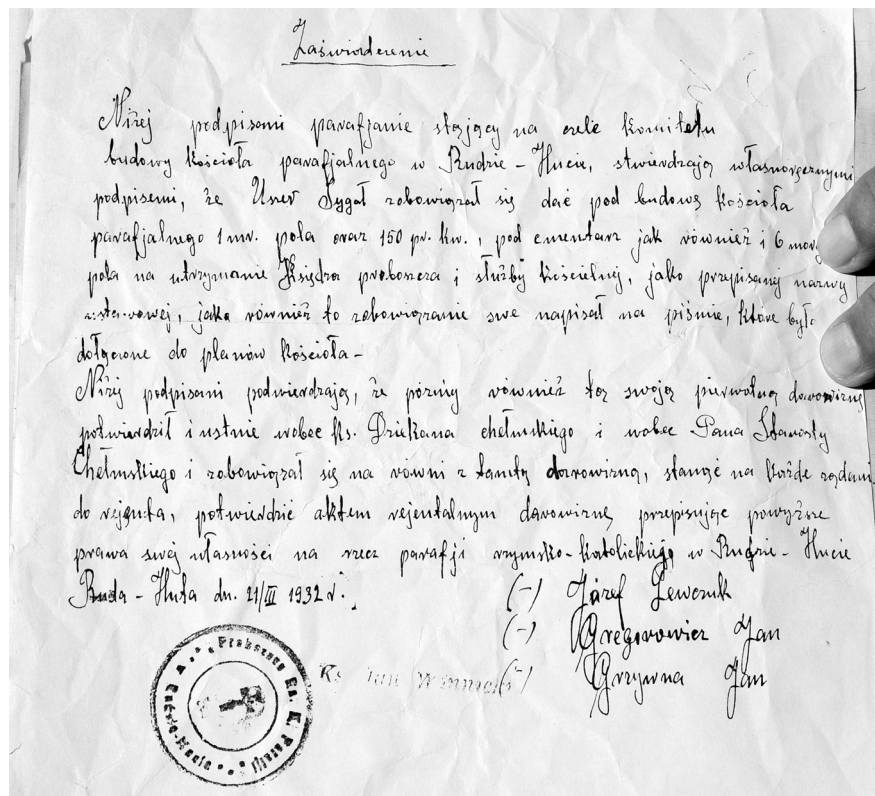 Zaświadczenie
Niżej podpisani parafjanie stojący na czele Komitetu
budowy kościoła parafjalnego w Rudzie - Hucie, stwierdzają własnoręcznymi
podpisami, że Uszer Sygał zobowiązał się dać pod budowę kościoła
parafjalnego 1 mr. pola oraz 150 pr. kw., pod cmentarz jak również i 6 morg
pola na utrzymanie Księdza proboszcza i służby kościelnej, jako przepisanej nazwy
jako również to zobowiązanie swe napisał na piśmie, które było
dołączone do planów kościoła -
Niżej podpisani podwierdzają, że późniy również tą swoją pierwotną darowiznę
potwierdził i ustnie wobec ks. Dziekana chełmskiego i wobec Pana Starosty
Chełmskiego i zobowiązał się na równi z tamtą darowizną, stanąć na każde rządani
do rejenta, potwierdzić aktem rejentalnym darowiznę przepisując powyższe
prawa swej własności na rzecz parafji rzymsko-katolickiej w Rudzie - Hucie
Ruda - Huta dn. 21/III 1932 r.
(-) Józef Lewczuk
(-) Gregorowicz Jan
(-) Grzywna Jan